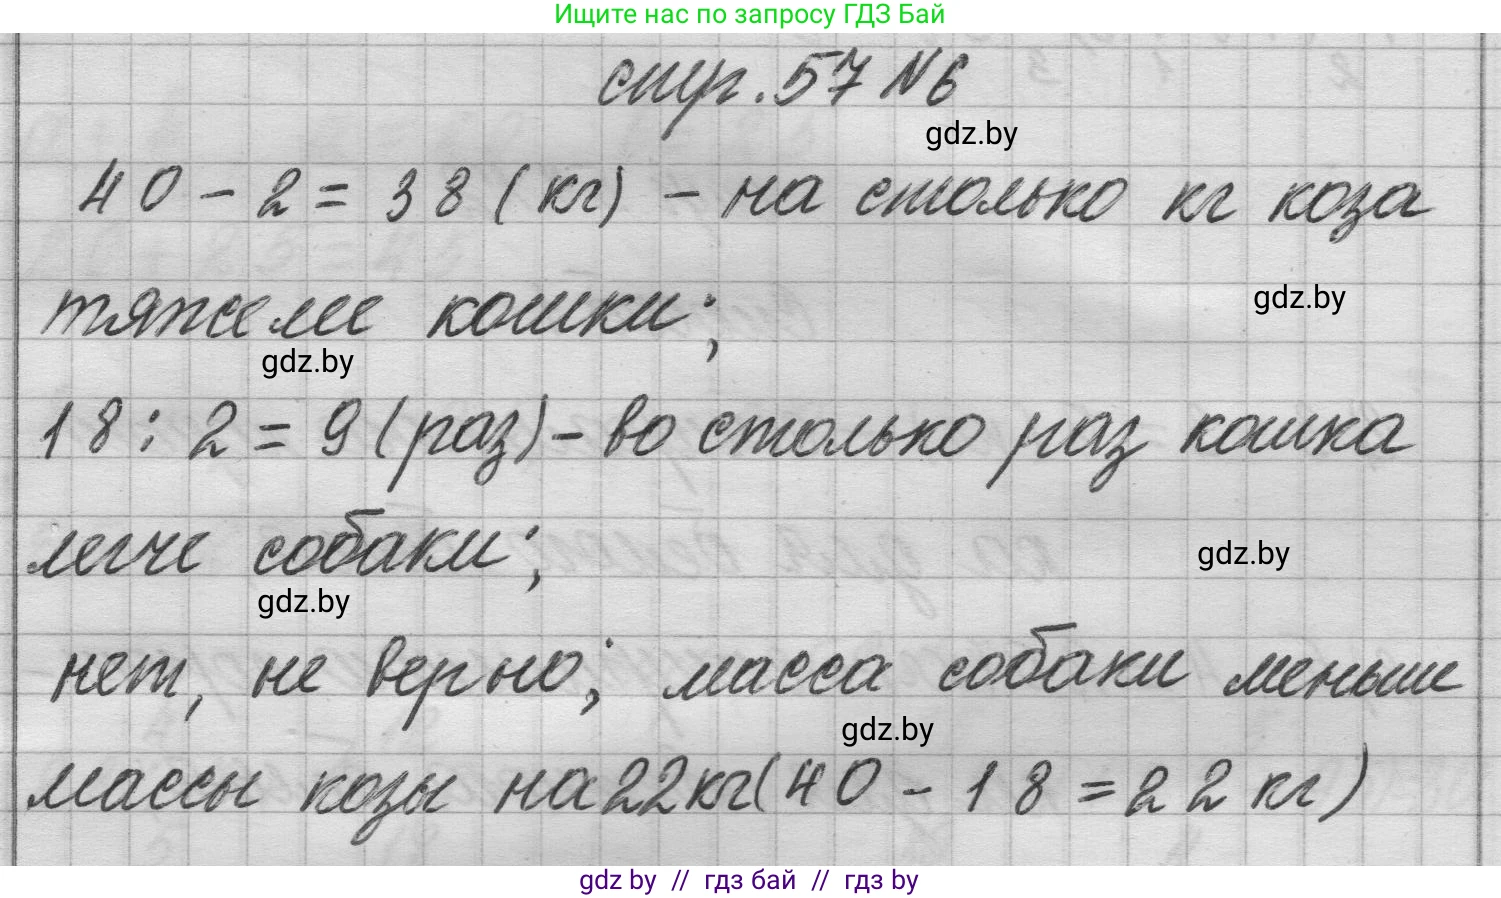 Ищите нас по запросу ГДЗ Бай
стр. 57 №6
gdz.by
40 - 2 = 38 (кг) - на столько кг коза
тяжелее кошки;
gdz.by
gdz.by
18 : 2 = 9 (раз) - во столько раз кошка
легче собаки;
gdz.by
gdz.by
нет, не верно; масса собаки меньше
gdz.by
массы козы на 22 кг (40 - 18 = 22 кг)
gdz by // гдз бай // гдз by